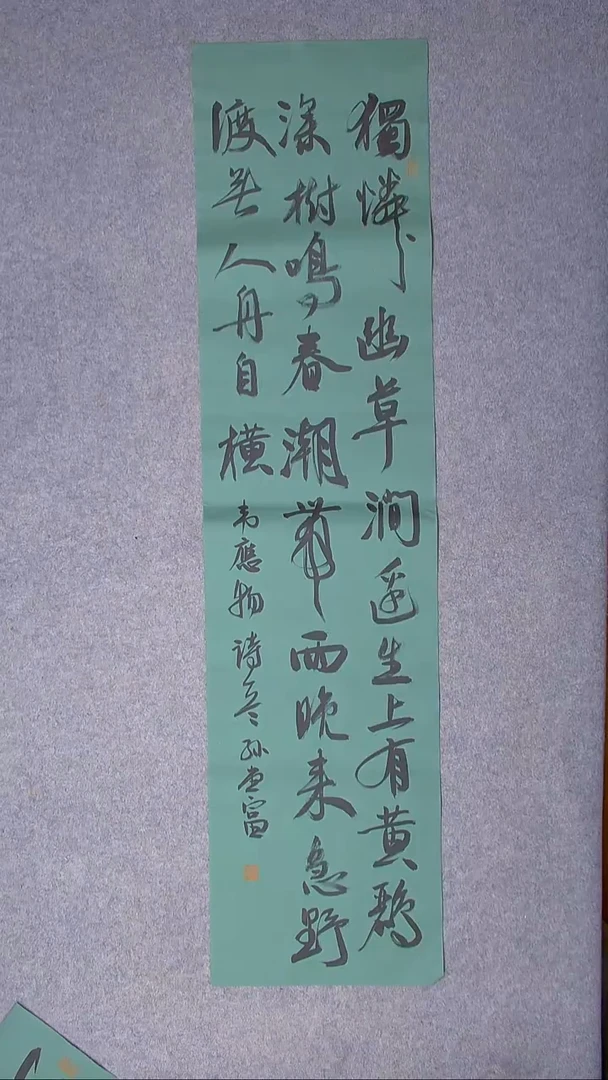 獨憐幽草澗邊生上有黄鸝
深樹鳴春潮帶雨晚来急野
渡無人舟自横
韦應物詩 孙 富